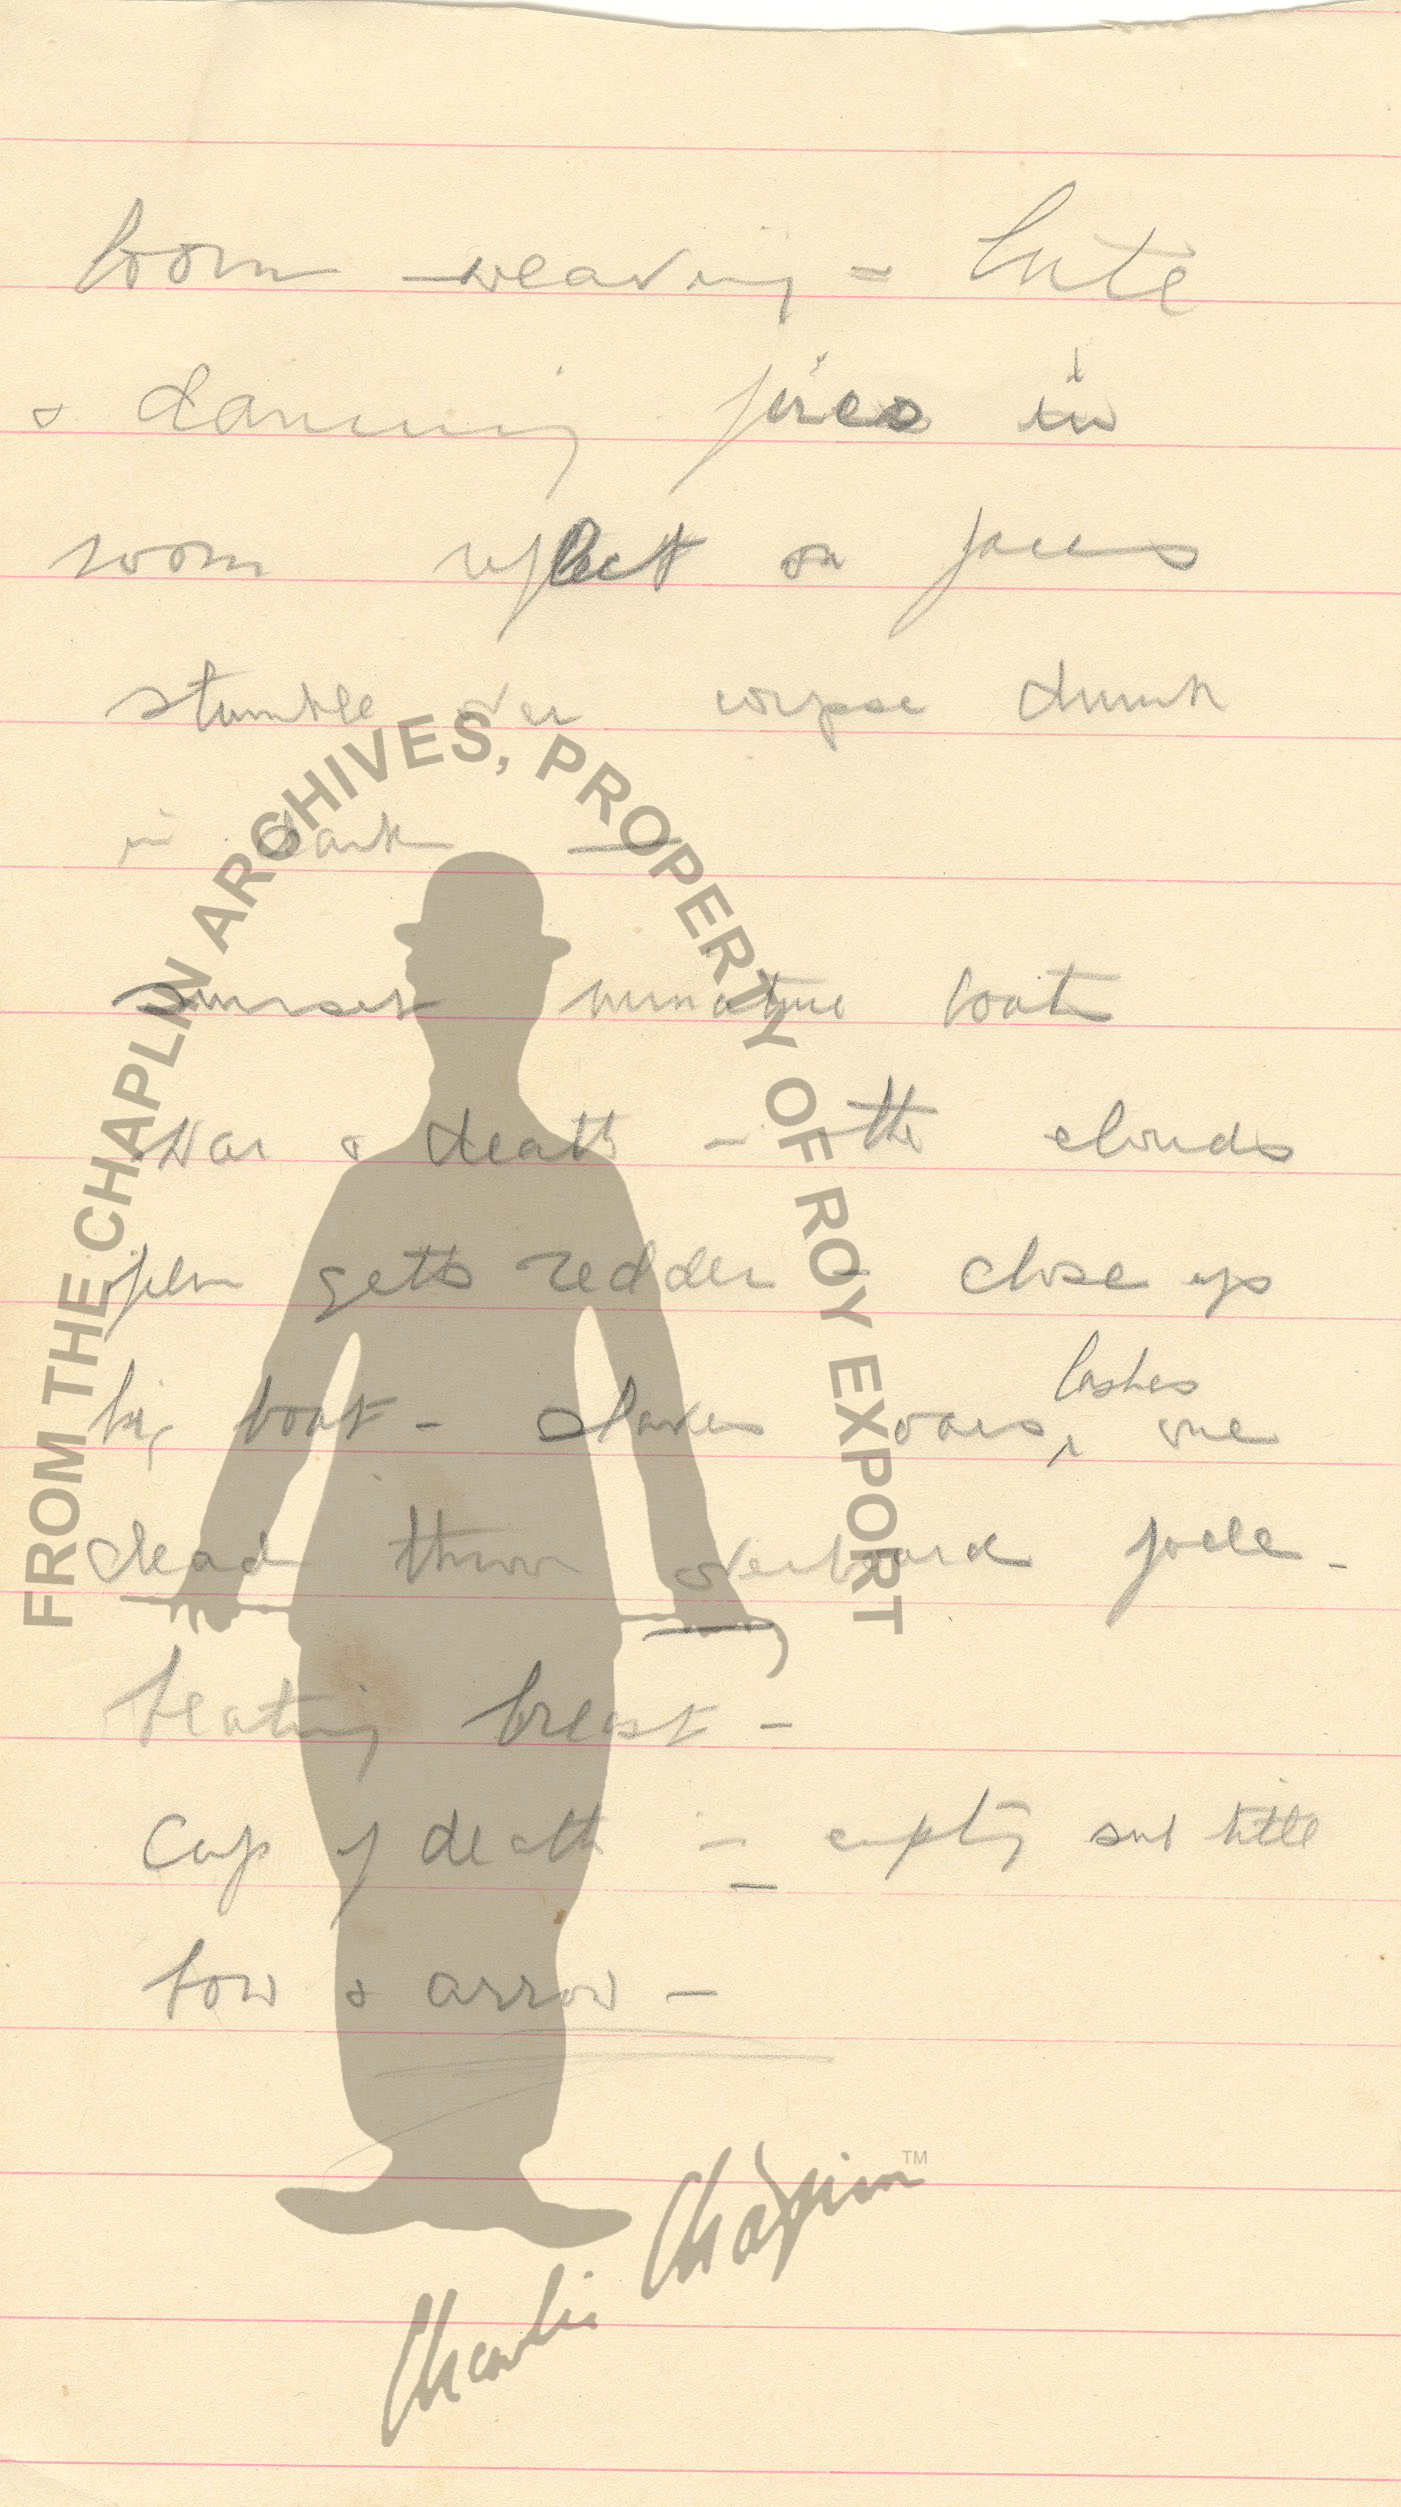 loom weaving = lute
& dancing fires in
room reflect on faces
stumble over corpse drunk
in dark —
sunset miniature boats
war & death - the clouds
film gets redder - close up
big boat - slaves oars, lashes one
dead throw overboard
beating breast -
Cup of death - empty sub title
bow & arrow -
FROM THE CHAPLIN ARCHIVES, PROPERTY OF ROY EXPORT
Charlie Chaplin TM